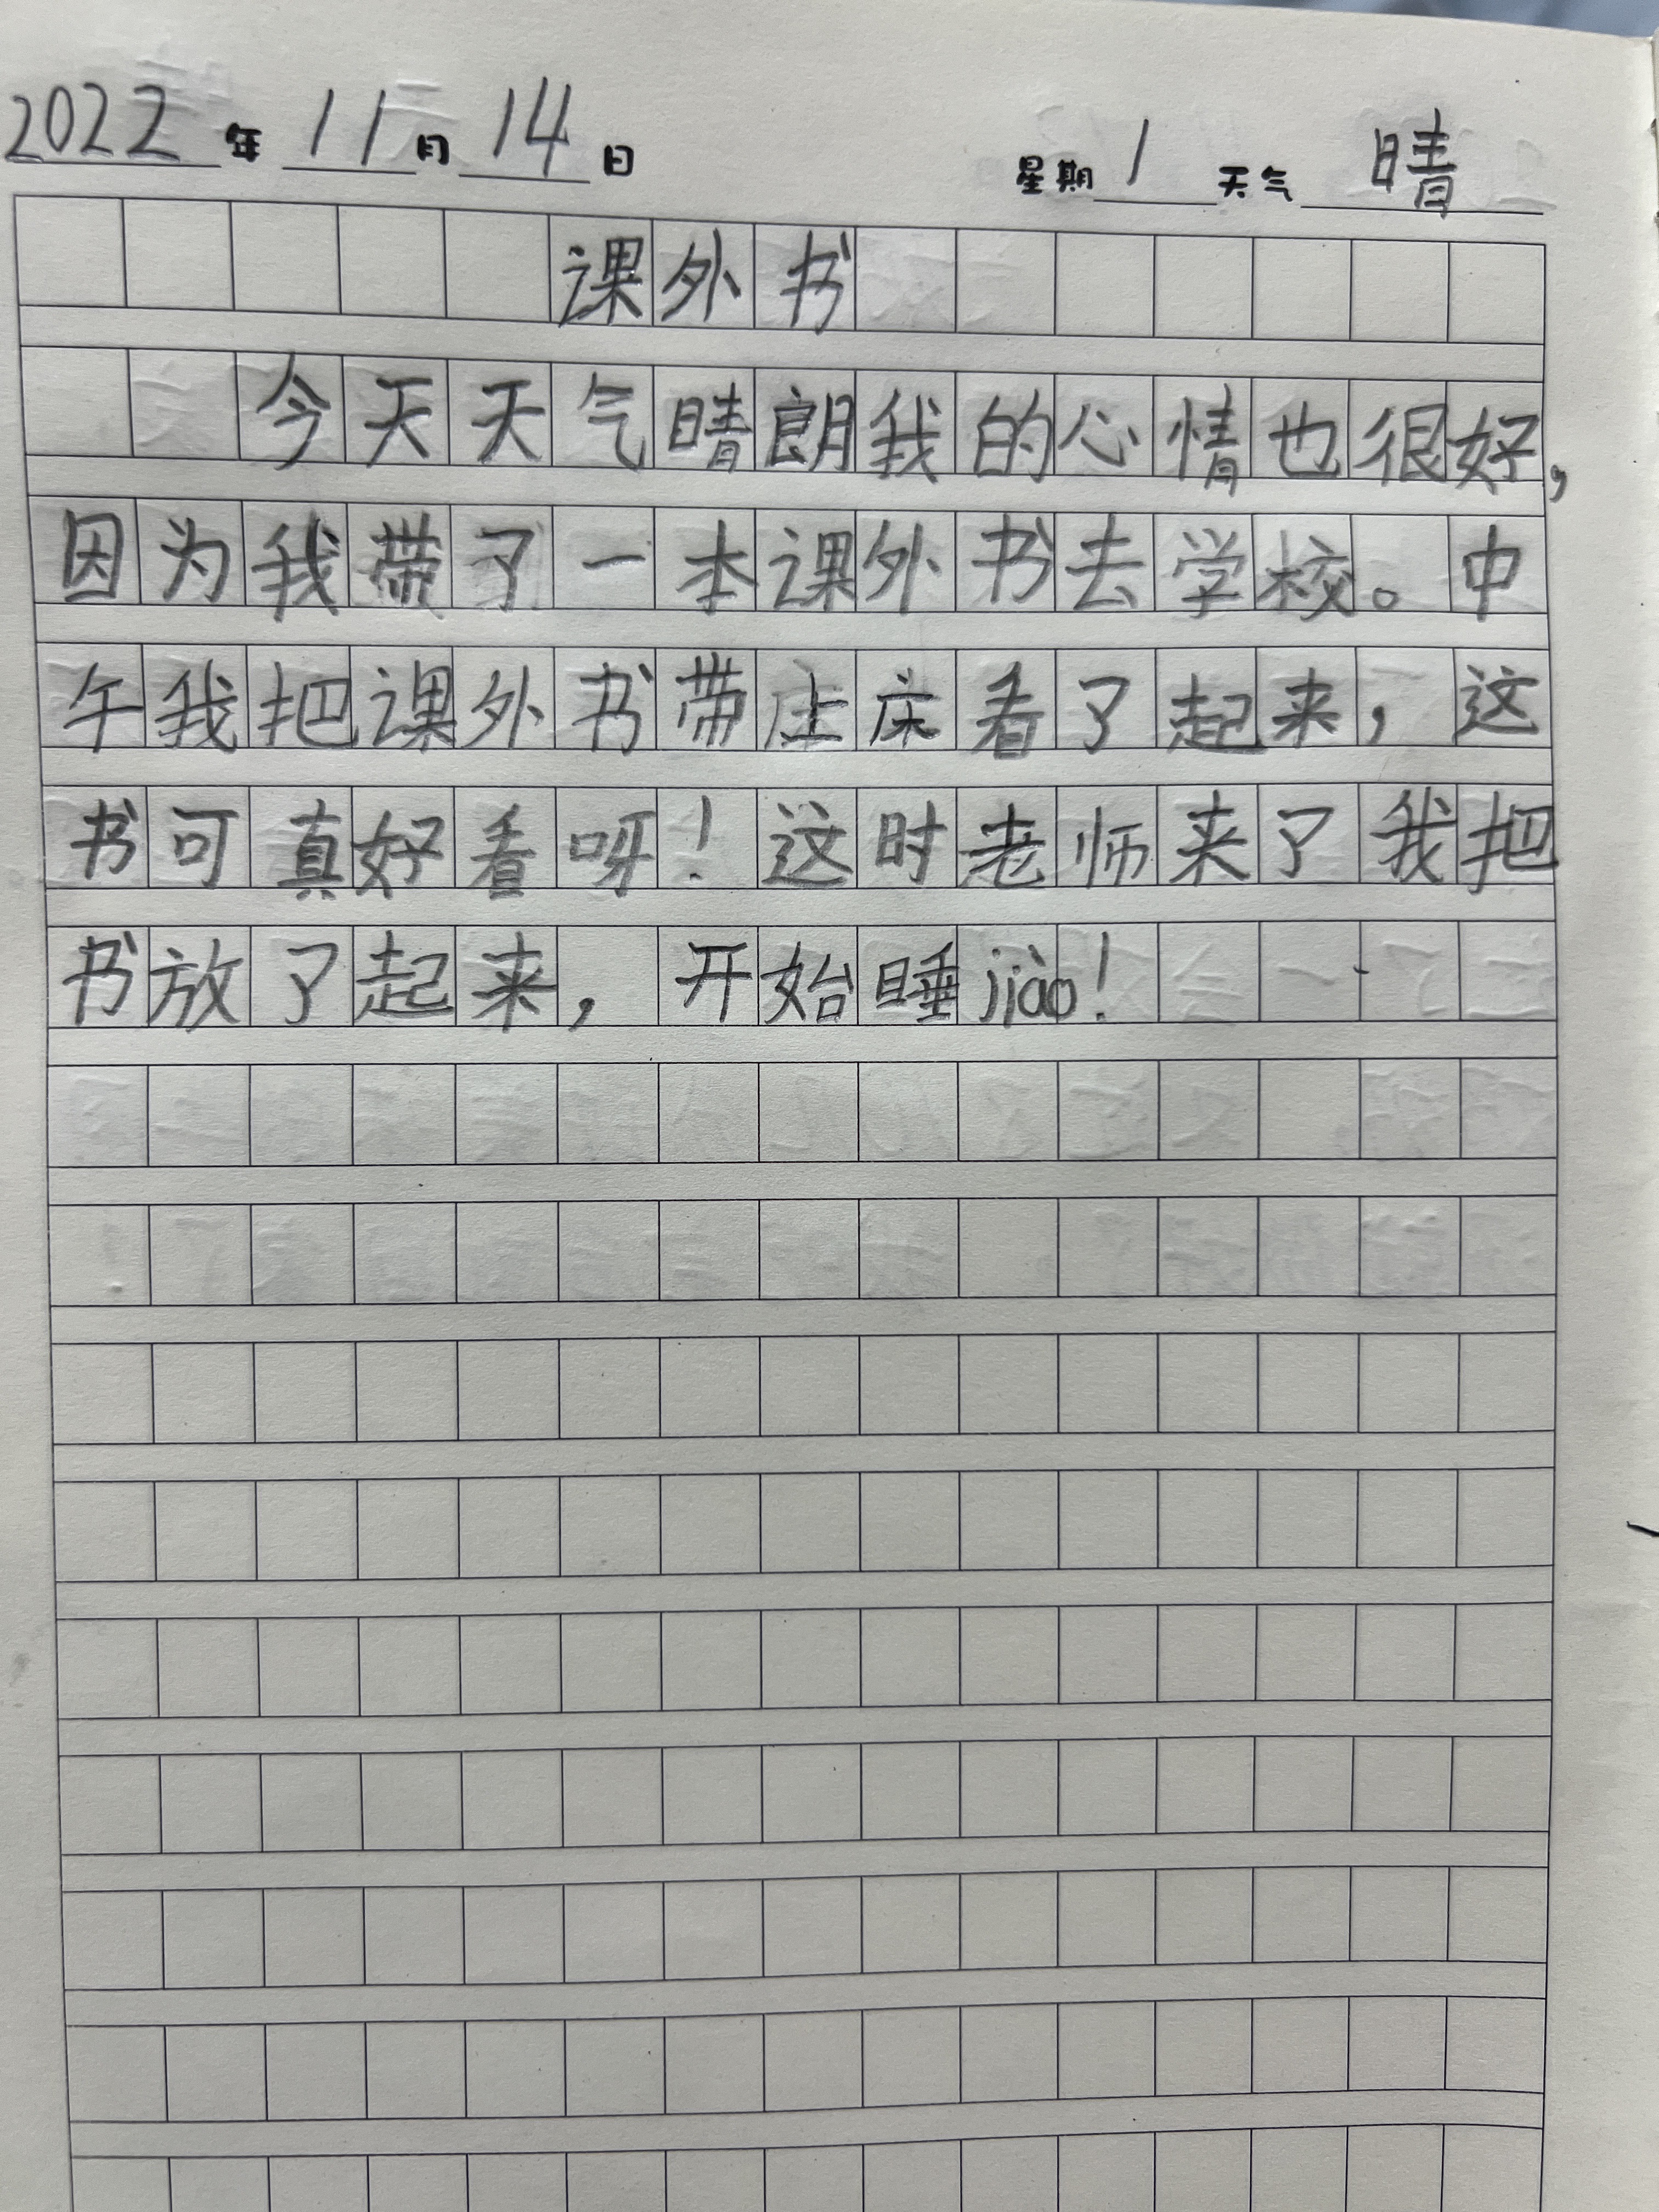 2022年11月14日 星期1天气晴
课外书
今天天气晴朗我的心情也很好，
因为我带了一本课外书去学校。中
午我把课外书带上床看了起来，这
书可真好看呀！这时老师来了我把
书放了起来，开始睡jiào！